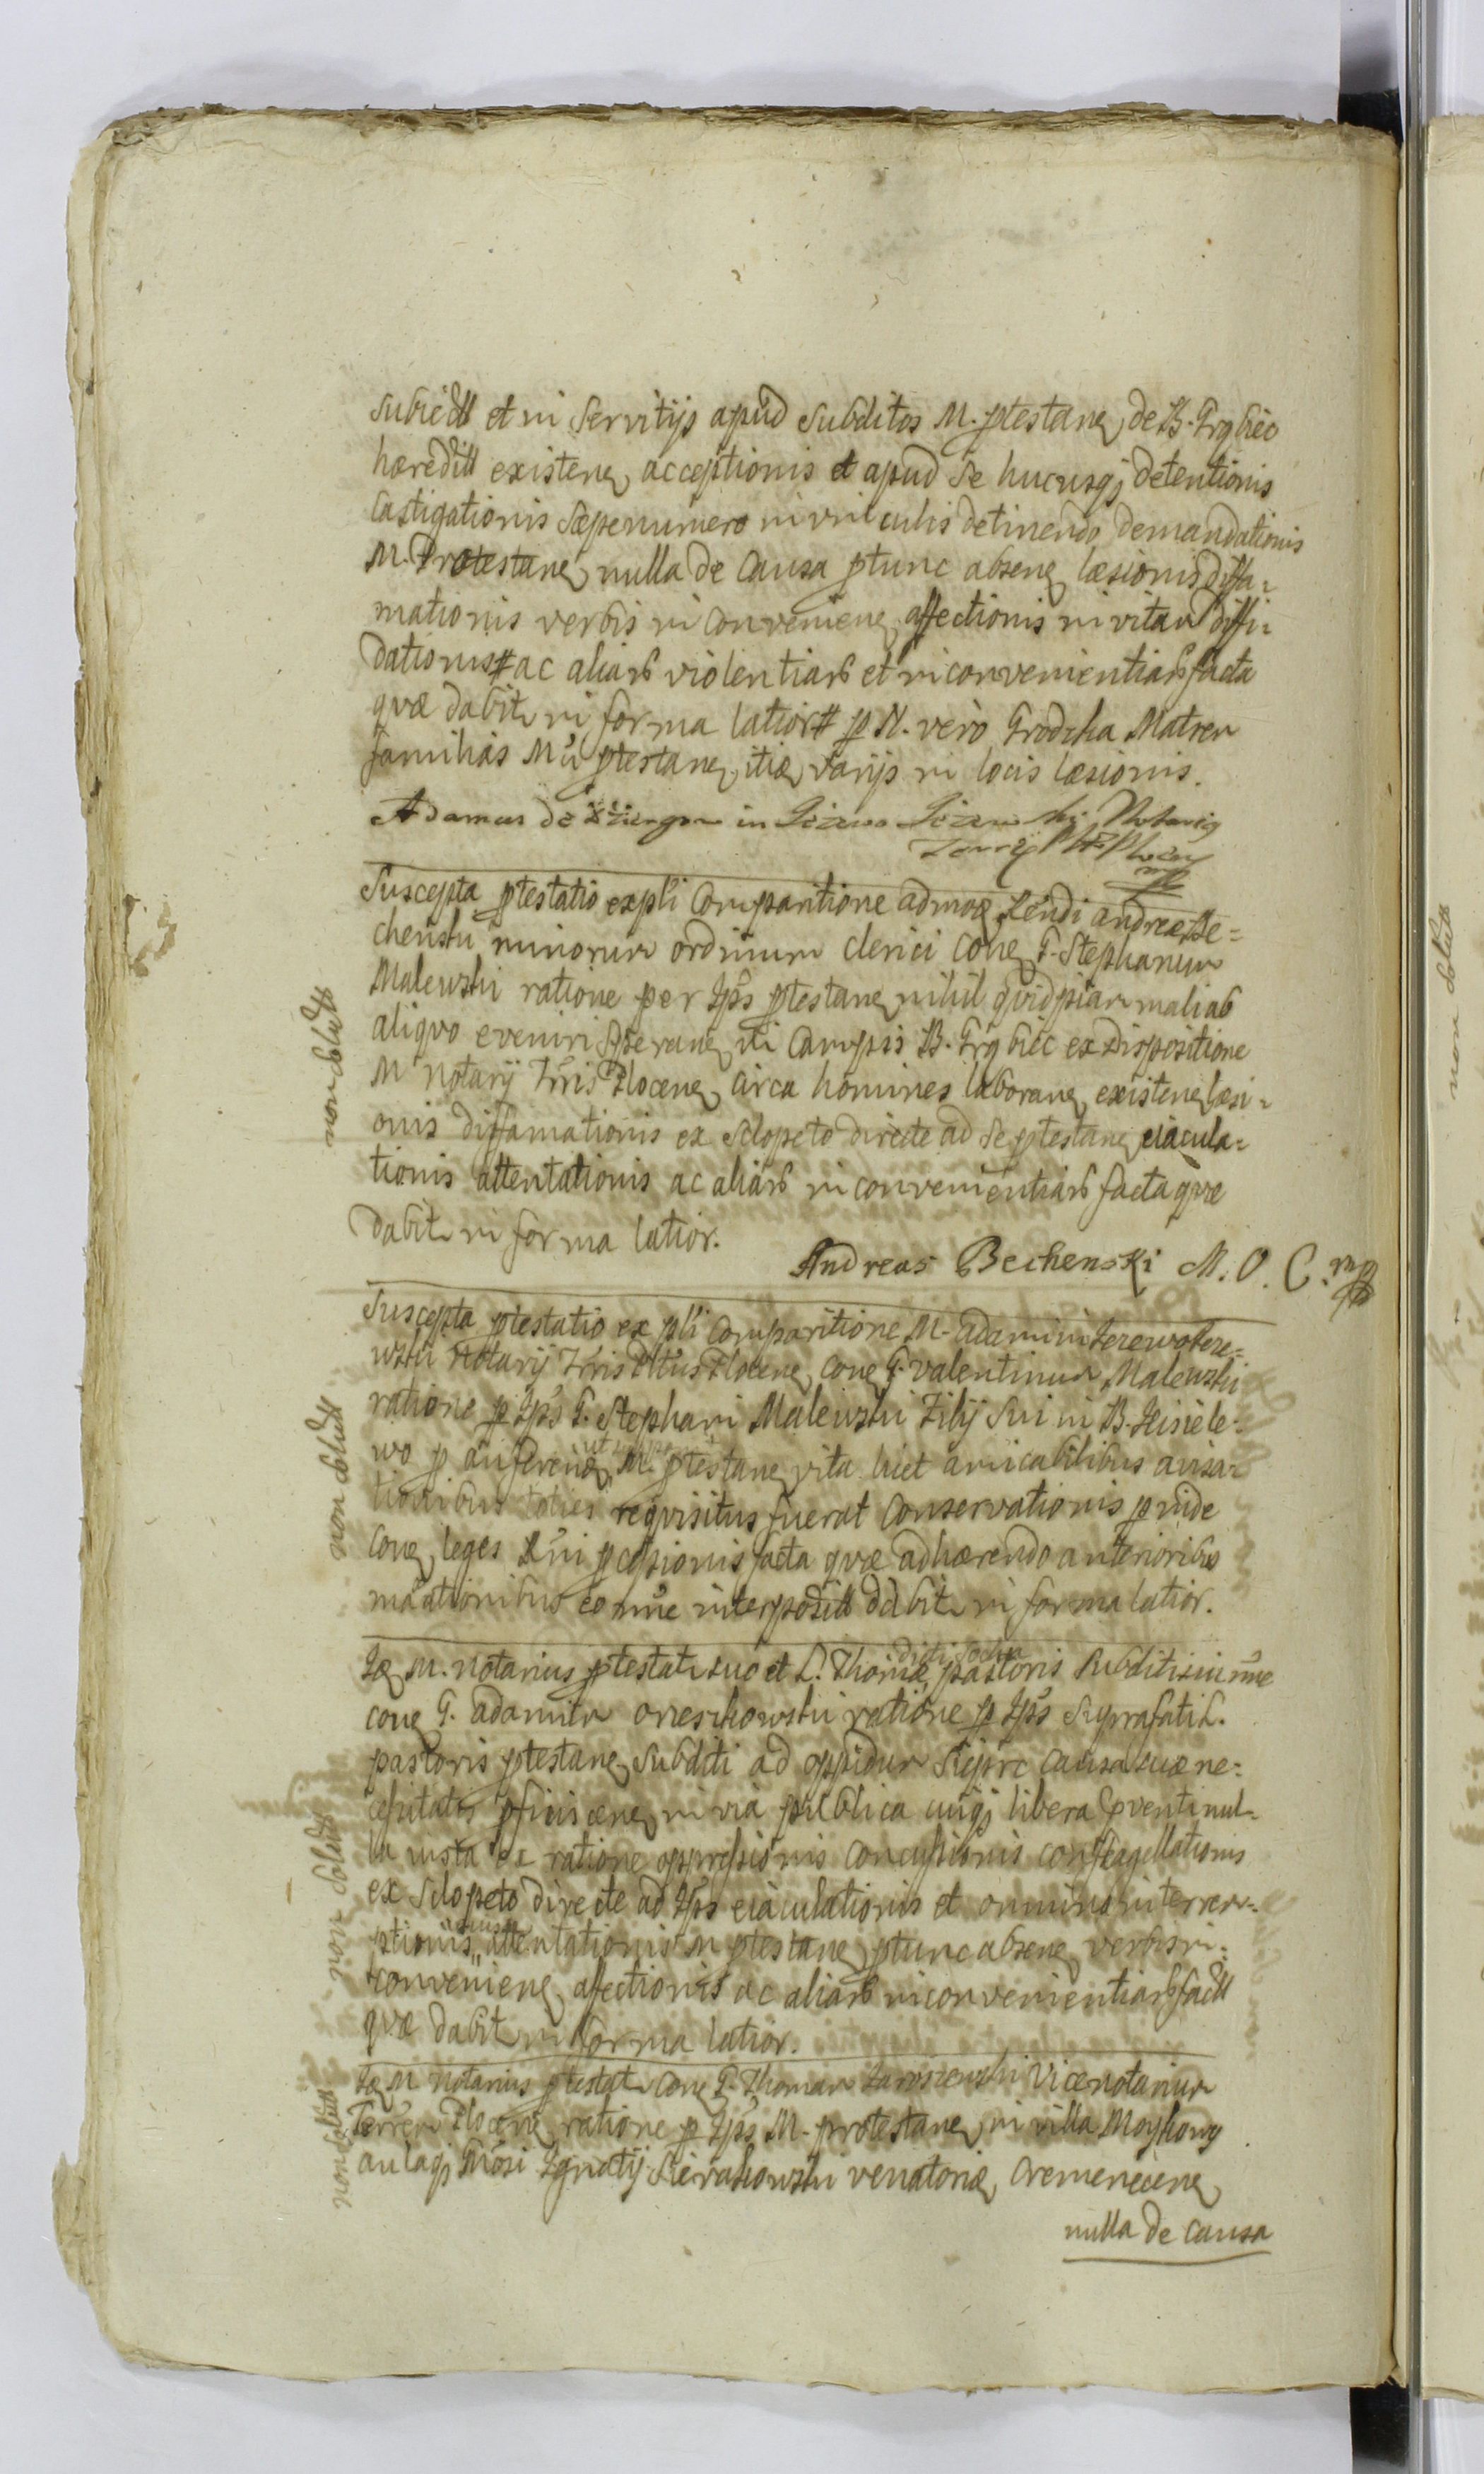 subiectt et in Servitijs apud Subditos M. ptestane de B. Grąbiec
hæreditt existene acceptionis et apud Se hucusqȝ detentionis
Castigationis Sæpenumero in vinculis detinendo demandationis
M. Protestane nulla de Causa ptunc absene læsionis diffa=
mationis verbis in Conveniene affectionis in vitam diffi=
dationis # ac aliarb violentiarb et inconvenientiarb facta
qvæ dabitr in forma latiori # p N. vero Matrem
familias M ptestane varijs in locis læsionis.
Adamus de in Notarig
Suscepta ptestatio ex psli Comparitione admoe Rendi andreæ Be=
chenski minorum ordinum clerici Cone G. Stephanum
Malewski ratione per Ips ptestane nihil qvidpiam mali ab
aliqvo eveniri Sperane in Campis B. Grąbiec ex Dispositione
M Notarij Trris Plocene Circa homines laborane existene læsi=
onis diffamationis ex Sclopeto directe ad Se ptestane eiacula=
tionis attentationis ac aliarb inconvenientiarb facta qvæ
dabitr in forma latior.
Andreas Bechenski M. O. C. mp
Suscepta ptestatio ex psli Comparitione M. Adami in
wski Notarij Trris Pltus Plocene Cone G. Valentinum Malewski
ratione p Ips G. Stephani Malewski Filij Sui in B.
wo p M. ptestane vita licet amicabilibus avisa=
tionibus toties reqvisitus fuerat Conservationis pinde
Cone leges Rni pcessionis facta qvæ adhærendo anterioribus
mãationibus eo nme interpositt dabitr in forma latior.
Ie M. Notarius ptestatr suo et L. Thomæ dicti pastoris Subditi sui nme
cone G. Adamum ratione p Ips Suprafati L.
pastoris ptestane Subditi ad oppidum Sierpc causa suæ ne=
cessitatis pficiscene in via publica cuiqȝ libera pventi nul=
la iusta ex ratione oppressionis Concussionis conflagellationis
ex Sclopeto directe ad Ips eiaculationis et omnino interrem=
ptionis attentationis M ptestane ptunc absene verbis in=
conveniene affectionis ac aliarb inconvenientiarb factt
qvæ dabitr in forma latior.
Ie M Notarius ptestatr Cone G. Thomam Jaroszewski Vicenotarium
Terrem Plocene ratione p Ips M. protestane in villa
aulaqȝ Ignatij Sierakowski venatoriæ Cremenecene
nulla de causa
non solutt
non solutt
non solutt
non solutt
non solutt